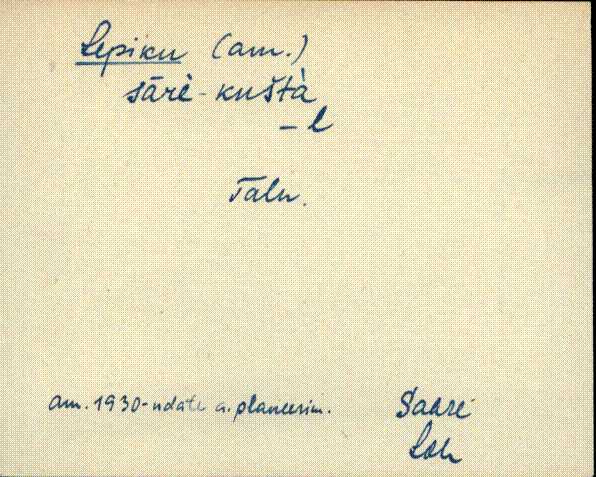 Lepiku (am.)
sārè-kuštà
-l
Talu.
am. 1930-ndate a. planeerim.
Saare